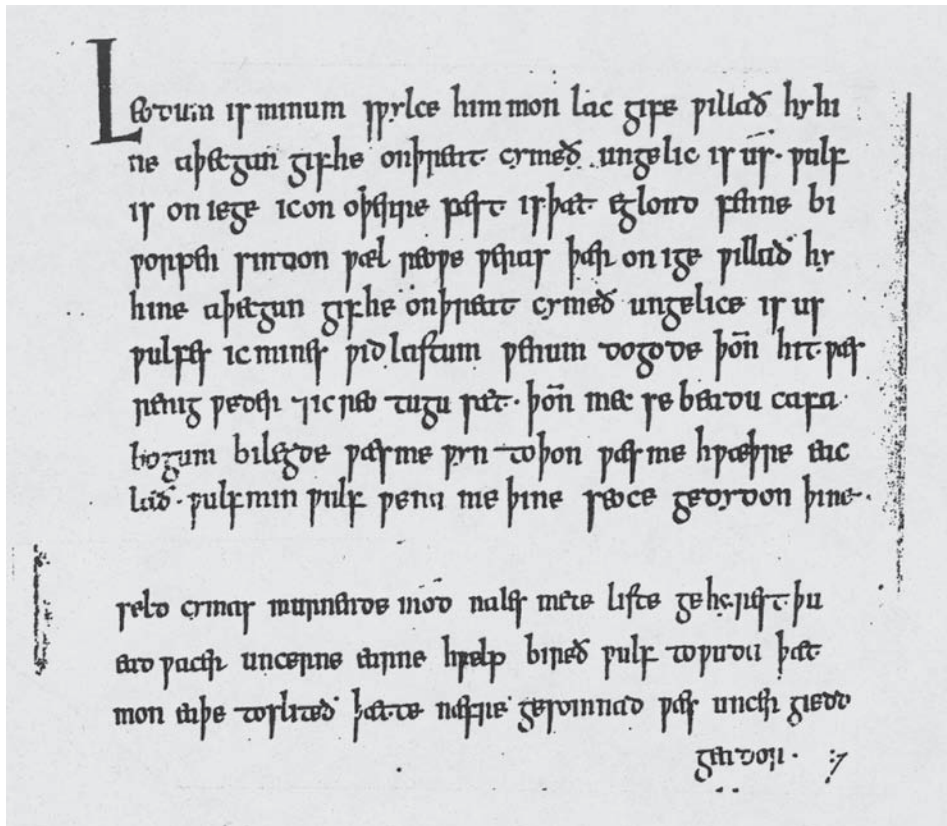 Leodum is minum sƿylce him mon lac gife ƿillað hy hi
ne aþecgan gif he on þreat cymeð ungelic is us · ƿulf
is on iege ic on oþerre fæst is þæt eglond fenne bi
ƿorpen sindon ƿæl reoƿe ƿeras þær on ige ƿillað hy
hine aþecgan gif he on þreat cymeð ungelice is us
ƿulfes ic mines ƿid lastum ƿenum dogode þon̄ hit · ƿæs
renig ƿeder ⁊ ic reo tugu sæt · þon̄ mec se beadu cafa
bogum bilegde ƿæs me ƿyn to þon ƿæs me hƿæþre eac
lað · ƿulf min ƿulf ƿena me þine seoce gedydon þine
seld cymas murnende mod nales mete liste gehyrest þu
ead ƿacer uncerne earne hƿelp bireð ƿulf to ƿuda þæt
mon eaþe tosliteð þætte næfre gesomnad ƿæs uncer giedd
geador · :7